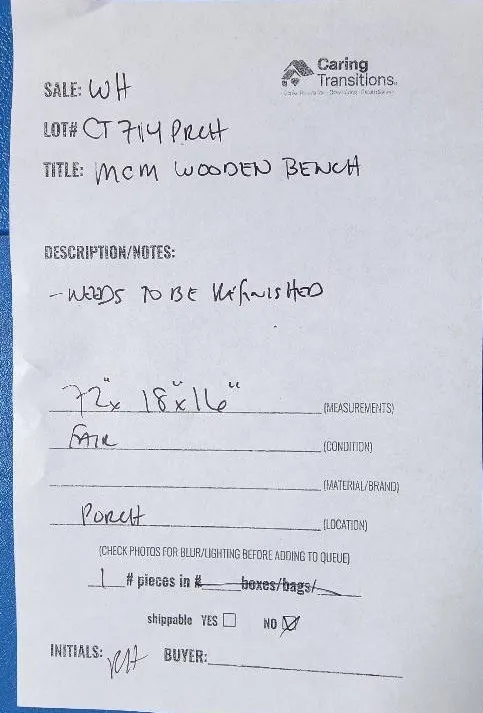 Caring
Transitions
SALE: WH
LOT# CT 714 PRCH
TITLE: MCM WOODEN BENCH
DESCRIPTION/NOTES:
- NEEDS TO BE REFINISHED
72" x 18" x 16" (MEASUREMENTS)
FAIR (CONDITION)
(MATERIAL/BRAND)
PORCH (LOCATION)
(CHECK PHOTOS FOR BLUR/LIGHTING BEFORE ADDING TO QUEUE)
1 # pieces in # boxes/bags/
shippable YES ☐ NO ☑
INITIALS: RH BUYER: